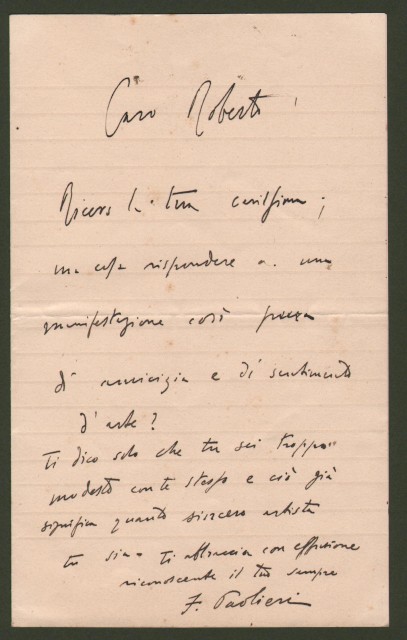 Caro Roberto
Ricevo la tua carissima;
ma cosa rispondere a una
manifestazione così
di amicizia e di sentimento
d'arte?
Ti dico solo che tu sei troppo
modesto con te stesso e ciò già
significa quanto sincero artista
tu sia. Ti abbraccia con effusione
riconoscente il tuo sempre
F. Paolieri